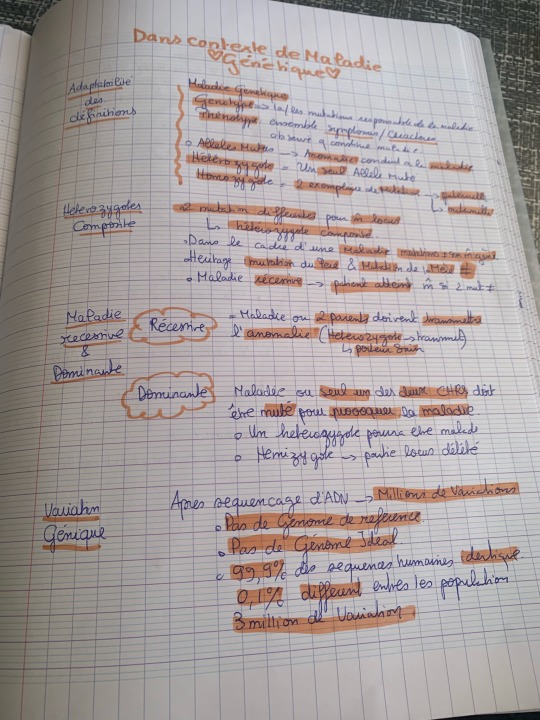 Dans contexte de Maladie
Génétique
Adaptabilité des définitions
Maladie Génétique
Génotype → la/les mutations responsable de la maladie
Phénotype ensemble symptomes/Caractères
observé q
Alleles Mutés → Anomalies conduit à la maladie
Hétérozygote = Un seul Allele Muté
Homozygote = 2 exemplaires de → paternelle
↳ maternelle
Hétérozygotes Composite
2 mutation differentes pour m̂ locus
↳ hétérozygote composite
Dans le cadre d'une Maladie mutations
Héritage mutation du Père & Mutation de la Mère ≠
Maladie récessive → patient atteint m̂ si 2 mut ≠
Maladie recessive & Dominante
Récessive
= Maladie ou 2 parents doivent transmettre
l'anomalie (Hétérozygote → transmet)
↳ porteur sain
Dominante
Maladie ou seul un des deux CHRS doit
être muté pour provoquer la maladie.
o Un hétérozygote pourra etre malade
o Hemizygote → partie locus délété
Variation Génique
Apres sequencage d'ADN → Millions de Variations
o Pas de Génome de reference
o Pas de Génome Ideal
o 99,9% des sequences humaines identique
0,1% different entres les population
3 million de Variation